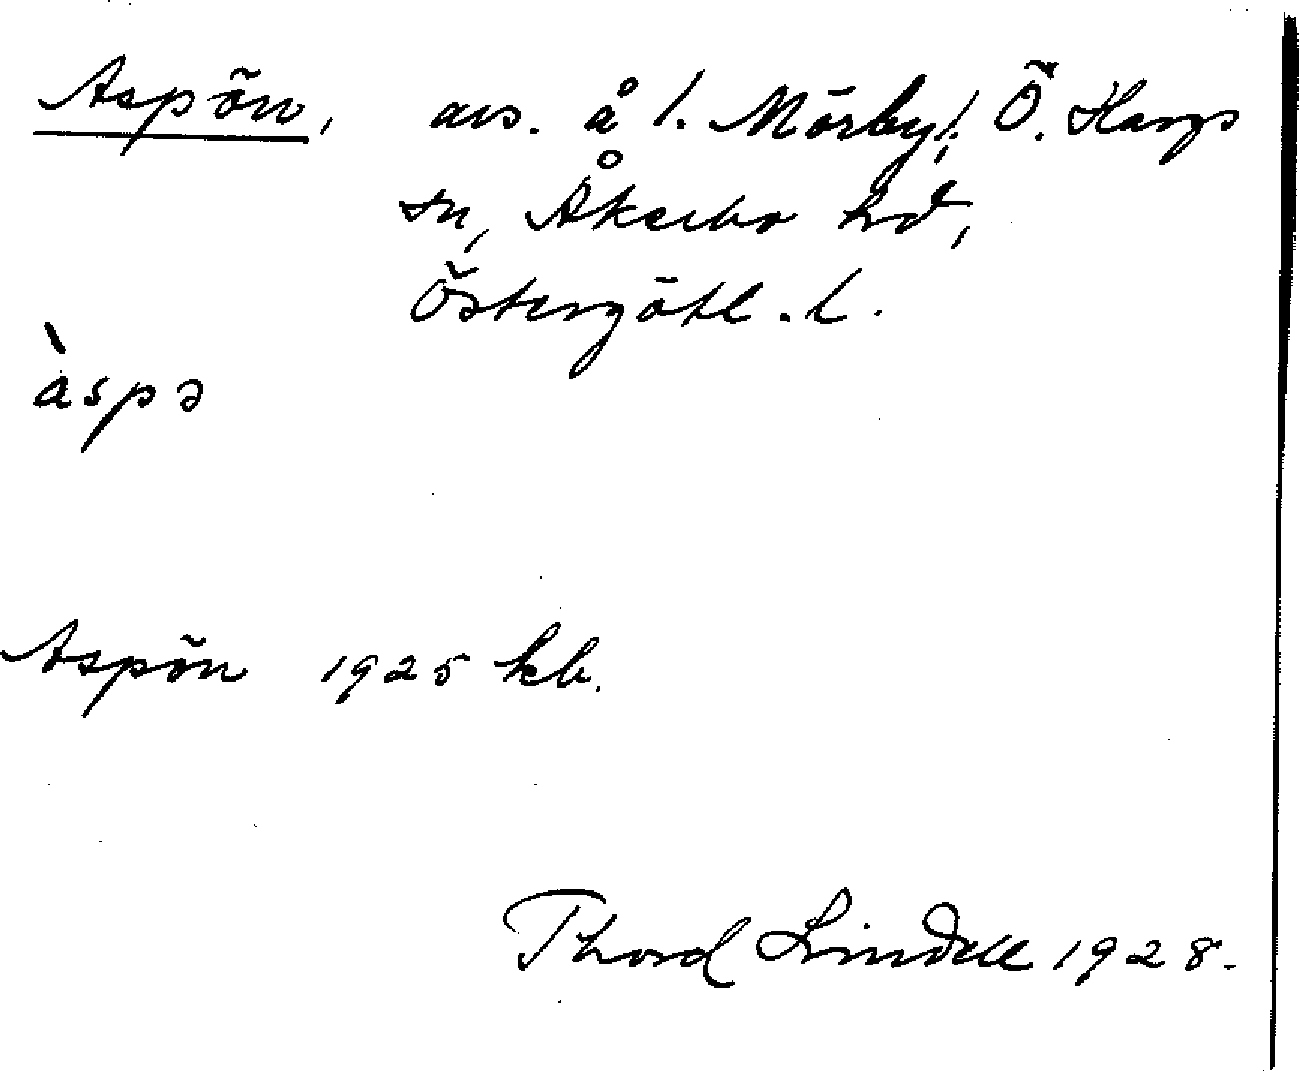 Aspön, avs. å l. Mörby l., Ö. Hargs
sn, Åkerbo hd,
Östergötl. l.
àspə
Aspön 1925 kb.
Thord Lindell 1928.